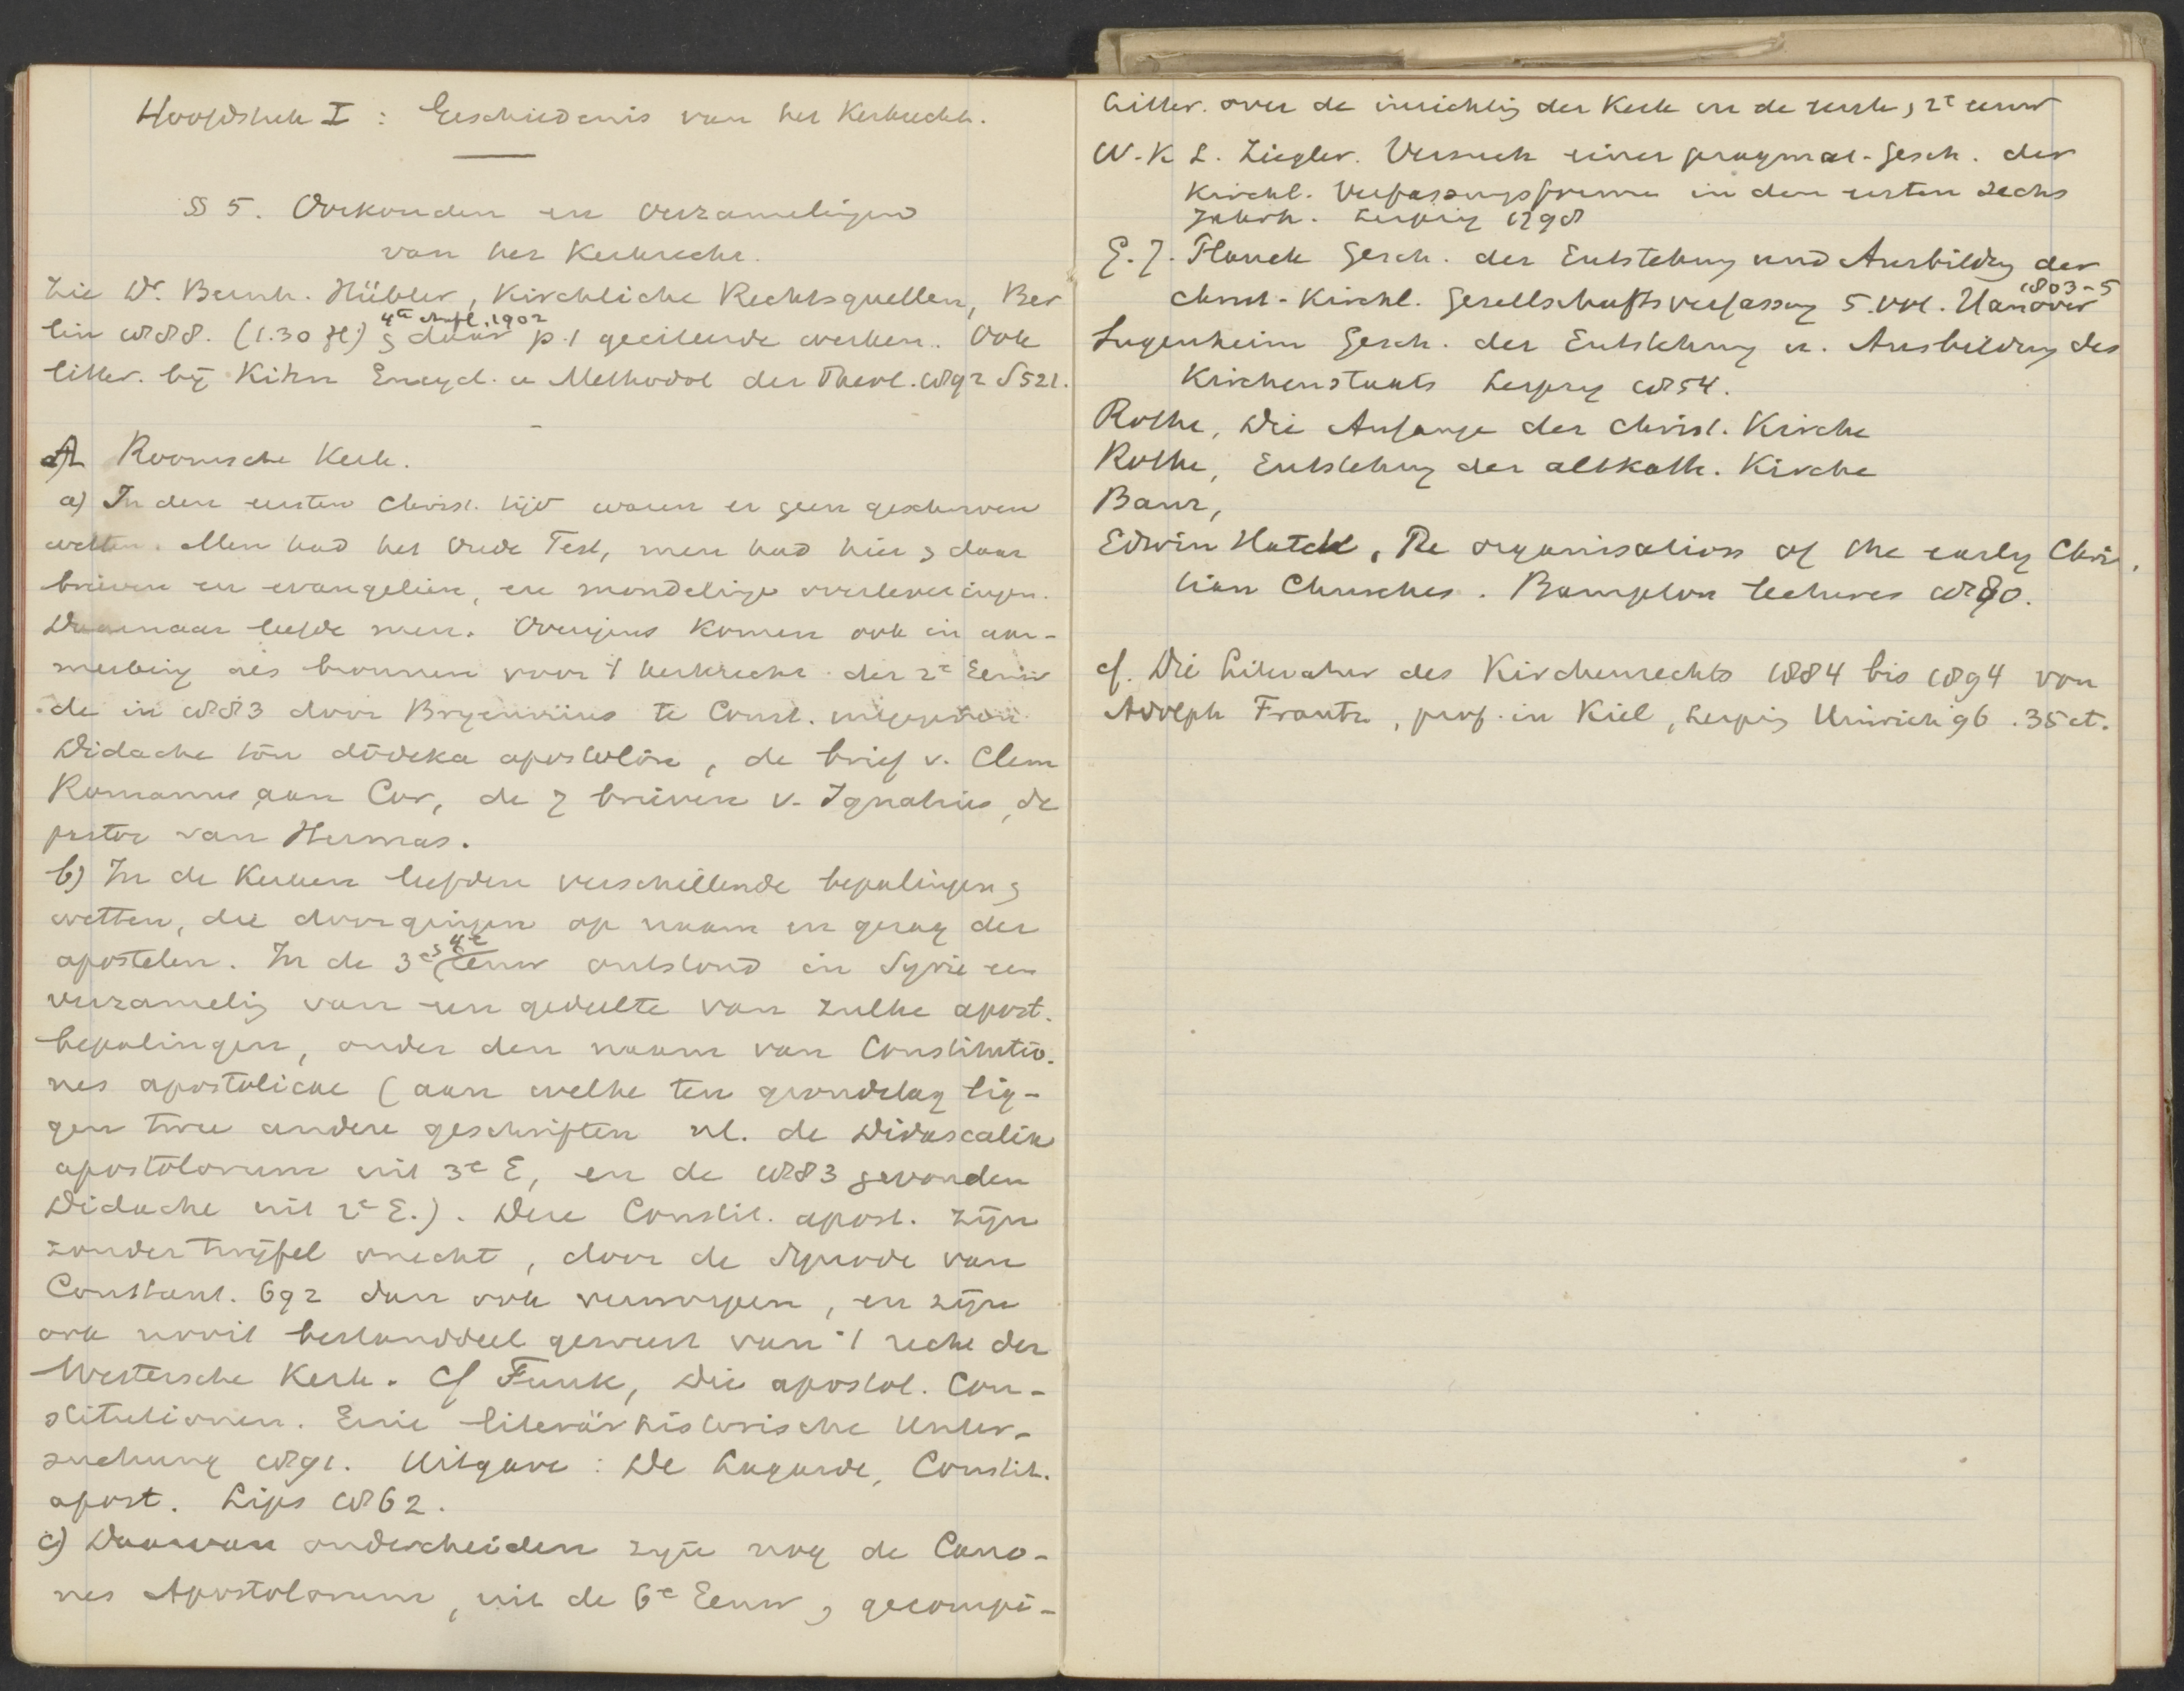 Hoofdstuk I : Geschiedenis van het Kerkrecht.
§ 5. Oorkonden en Verzamelingen
van het Kerkrecht.
Zie Dr. Bernh. Hübler, Kirchliche Rechtsquellen, Ber
4te Aufl. 1902
lin 1888. (1.30 fl) & daar p. 1 geciteerde werken. Ook
litter. bij Kihn Encycl. u Methodol der Theol. 1892 S 521.
A Roomsche Kerk.
a) In den eersten Christ. tijd waren er geen geschreven
wetten. Men had het Oude Test, men had hier & daar
brieven en evangeliën, en mondelinge overleveringen.
Daarnaar leefde men. Overigens komen ook in aan-
merking als bronnen voor 't kerkrecht der 2e Eeuw
de in 1883 door Bryennius te Const. uitgegeven
Didache tōn dōdeka apostolōn, de brief v. Clem
Romanus aan Cor, de 7 brieven v. Ignatius, de
pastor van Hermas.
b) In de Kerken leefden verschillende bepalingen &
wetten, die doorgingen op naam en gezag der
apostelen. In de 3e & 4e eeuw ontstond in Syrie een
verzameling van een gedeelte van zulke apost.
bepalingen, onder den naam van Constitutio-
nes apostolicae (aan welke ten grondslag lig-
gen twee andere geschriften nl. de Didascalia
apostolorum uit 3e E, en de 1883 gevonden
Didache uit 2e E.). Deze Constit. apost. zijn
zonder twijfel onecht, door de Synode van
Constant. 692 dan ook verworpen, en zijn
ook nooit bestanddeel geweest van 't recht der
Westersche Kerk. Cf Funk, Die apostol. Con-
stitutionen. Eine literärhistorische Unter-
suchung 1891. Uitgave : De Lagarde, Constit.
apost. Lips 1862.
c) Daarvan onderscheiden zijn nog de Cano-
nes Apostolorum, uit de 6e Eeuw, gecompi-
Litter. over de inrichting der Kerk in de eerste, 2e eeuw
W. K L. Ziegler. Versuch einer pragmat. Gesch. der
Kirchl. Verfassungsformen in den ersten sechs
Jahrh. Leipzig 1798
G. J. Planck Gesch. der Entstehung und Ausbildung der
christ-Kirchl. Gesellschaftsverfassung 5. vol. Hanover 1803-5
Sugenheim Gesch. der Entstehung u. Ausbildung des
Kirchenstaats Leipzig 1854.
Rothe, Die Anfange der christ. Kirche
Rothe, Entstehung der altkath. Kirche
Baur,
Edwin Hatch, The organisation of the early Chris
tian Churches. Bampton lectures 1880.
cf. Die Literatur des Kirchenrechts 1884 bis 1894 von
Adolph Frantz, prof. in Kiel, Leipzig Hinrich 96. 35 ct.